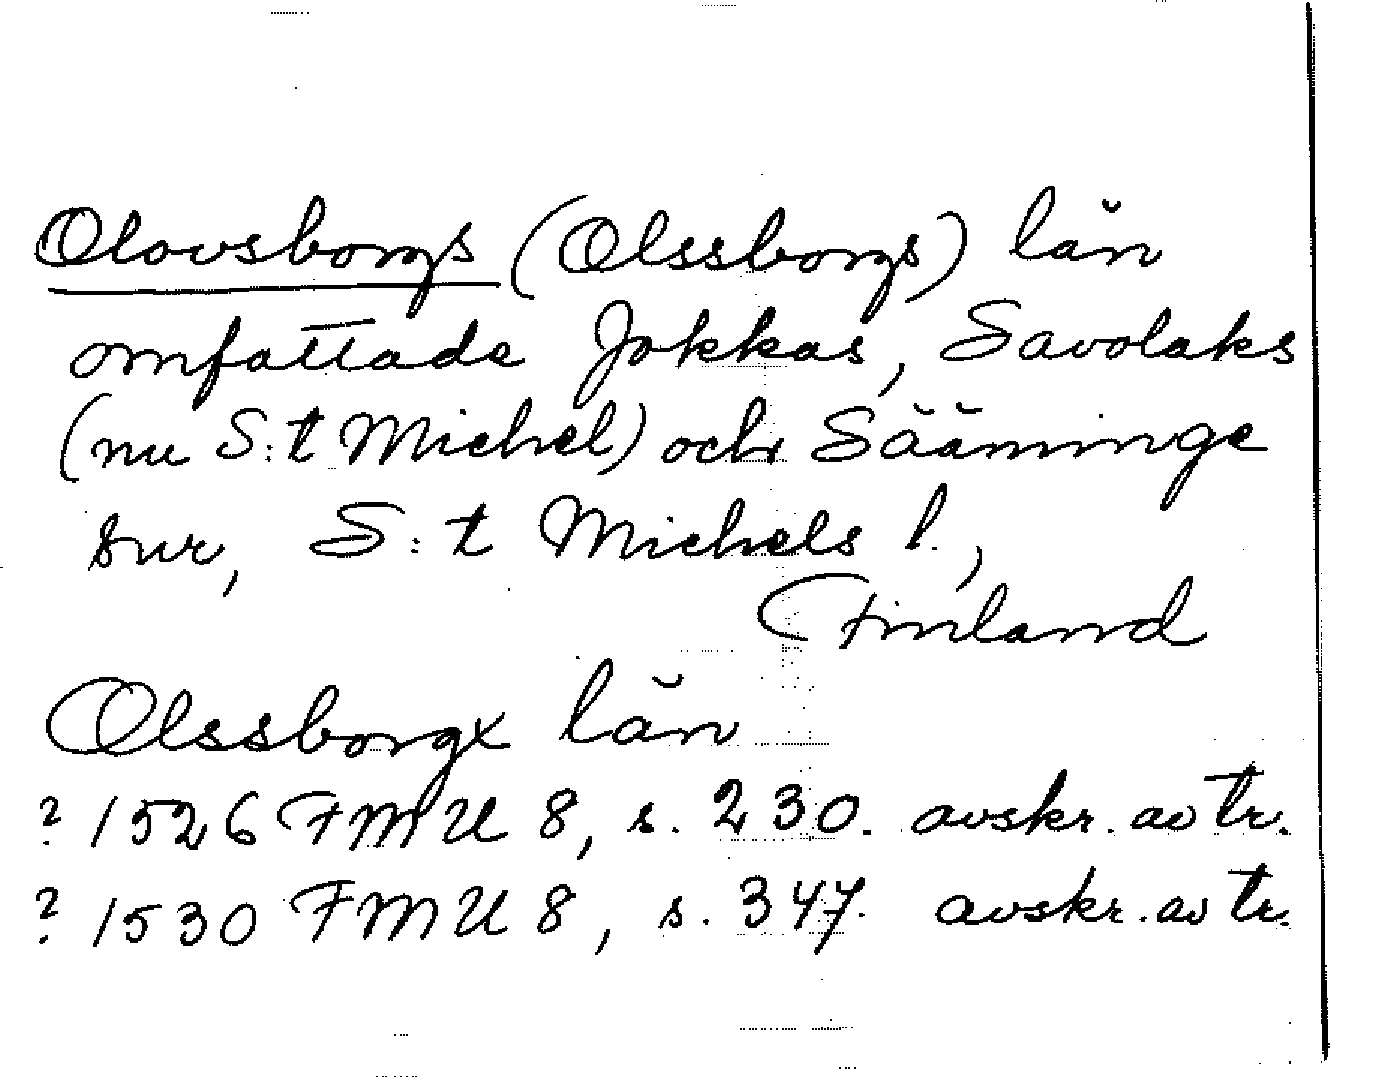 Olovsborgs (Olssborgs) län
omfattade Jokkas, Savolaks
(nu S:t Michel) och Sääminge
snr, S:t Michels l.,
Finland
Olssborgx län
? 1526 FMU 8, s. 230. avskr. av tr.
? 1530 FMU 8, s. 347. avskr. av tr.